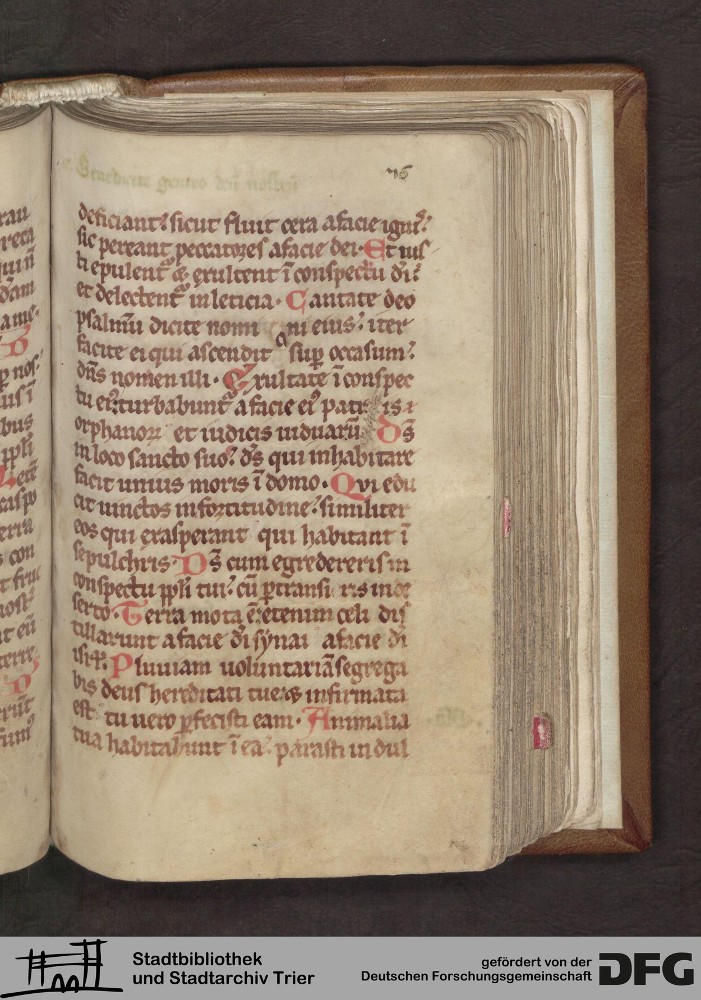 Benedicite gentes deū nostrū
76
deficiant: sicut fluit cera a facie ignis:
sic pereant peccatores a facie dei. Et ius
ti epulent & exultent ī conspectu dī:
et delectent in leticia. Cantate deo
psalmū dicite nomi ni eius: iter
facite ei qui ascendit sup occasum:
dn̄s nomen illi. Exultate ī conspec
tu ei: turbabunt a facie ei patris
orphanoꝝ et iudicis uiduarū Ds̄
in loco sancto suo: ds̄ qui inhabitare
facit unius moris ī domo. Qvi edu
cit uinctos in fortitudine: similiter
eos qui exasperant qui habitant ī
sepulchris. Ds̄ cum egredereris in
conspectu ppli tui: cū ptransi ris in de
serto. Terra mota ē: etenim celi dis
tillarunt a facie dī synai a facie dī
isrl. Pluuiam uoluntariā segrega
bis deus hereditati tue: & infirmata
est tu uero pfecisti eam. Animalia
tua habitabunt ī ea: parasti in dul
Stadtbibliothek
und Stadtarchiv Trier
gefördert von der
Deutschen Forschungsgemeinschaft
DFG